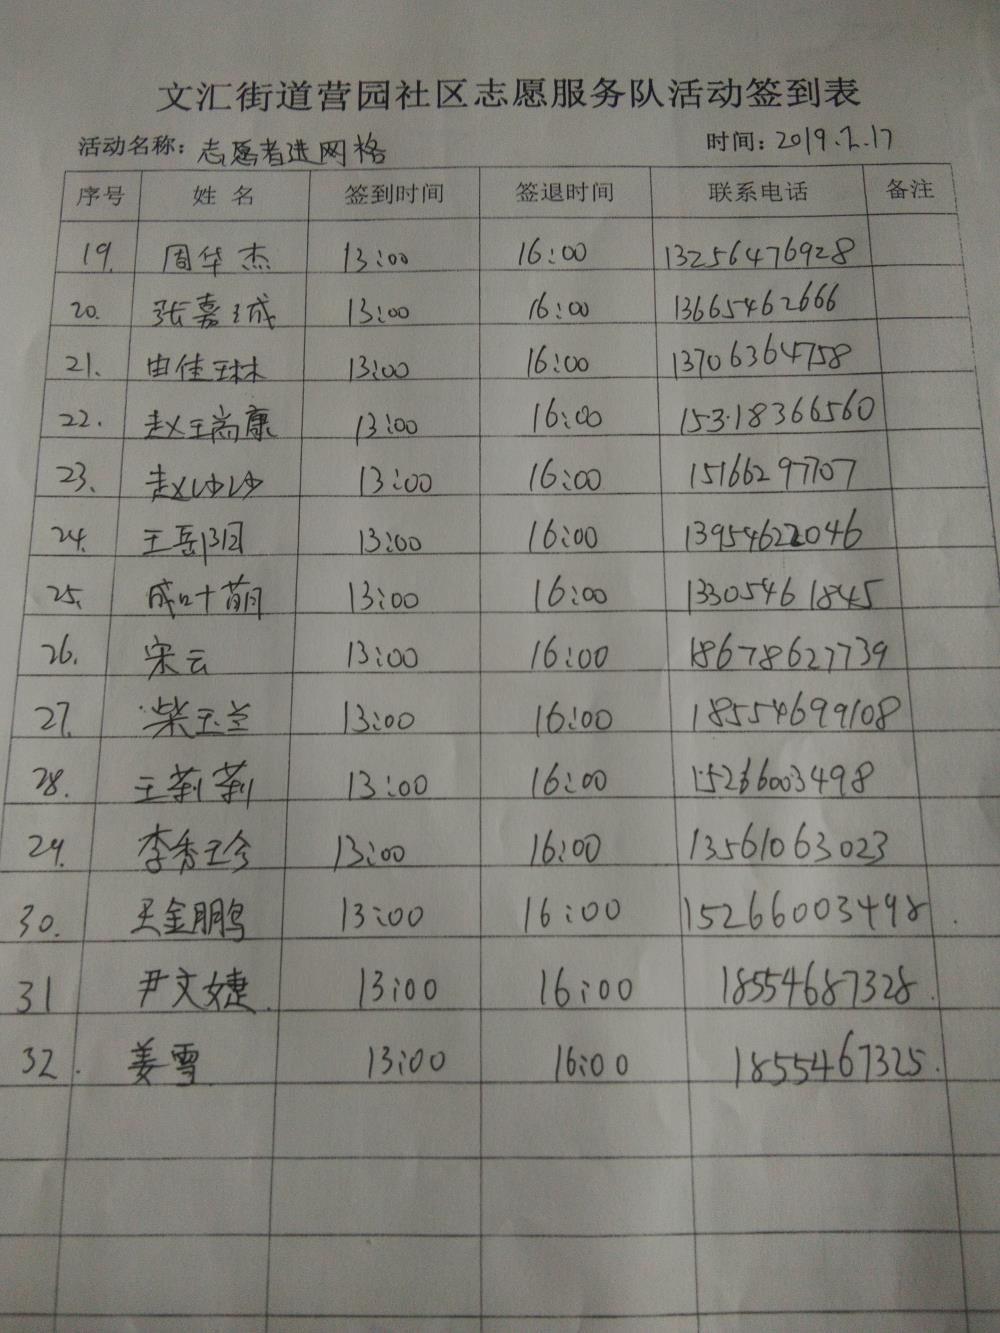 文汇街道营园社区志愿服务队活动签到表
活动名称：志愿者进网格 时间：2019.2.17
序号 姓名 签到时间 签退时间 联系电话 备注
19. 周华杰 13:00 16:00 13256476928
20. 张嘉珹 13:00 16:00 13665462666
21. 由佳琳 13:00 16:00 13706364758
22. 赵瑞康 13:00 16:00 153.18366560
23. 赵沙沙 13:00 16:00 15166297707
24. 王岳 13:00 16:00 13954622046
25. 成叶萌 13:00 16:00 13305461845
26. 宋云 13:00 16:00 18678627739
27. 柴玉兰 13:00 16:00 18554699108
28. 王莉莉 13:00 16:00 15266003498
29. 李秀珍 13:00 16:00 13561063023
30. 王金鹏 13:00 16:00 15266003498.
31 尹文婕. 13:00 16:00 18554687328.
32. 姜雪 13:00 16:00 1855467325.